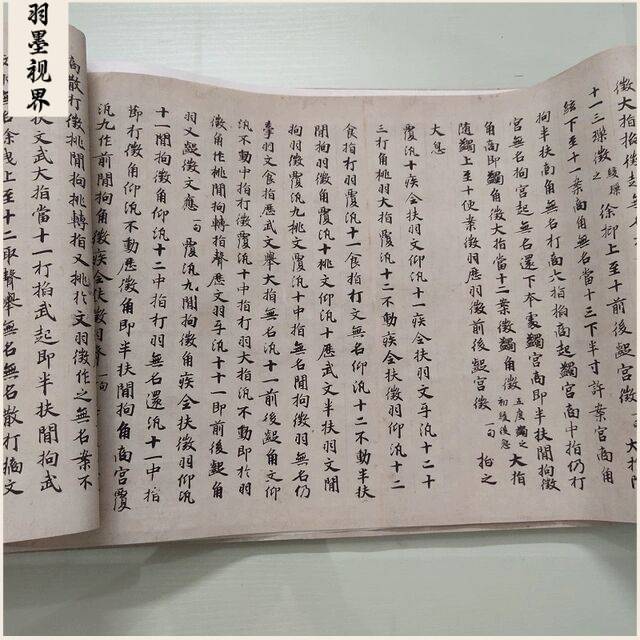 羽墨视界
徵大指掐徵
十一三櫟徵緩櫟之徐抑上至十
絃下至十一案商角無名當十三下半寸許案宮商角
拘半扶商角無名打商大指掐商起蠲宮商中指仍打
宮無名拘宮起無名還下本處蠲宮商即半扶閒拘徵
角商即蠲角徵大指當十二案徵蠲角徵五度蠲之初緩後急大指
隨蠲上至十使案徵羽應羽徵前後齪宮徵一句拾之
大息
覆汎十疾全扶羽文仰汎十一疾全扶羽文手汎十二十
三打角挑羽大指覆汎十二不動疾全扶徵羽仰汎十二
食指打羽覆汎十一食指打文無名仰汎十二不動半扶
閒拘羽徵角覆汎十挑文仰汎十應武文半扶羽文閒
拘羽徵覆汎九挑文覆汎十中指打文無名閒拘徵羽無名仍
牽羽文食指歷武文舉大指無名汎十一前後齪角文仰
汎不動中指打徵覆汎十中指打羽大指汎不動即於羽
徵角作挑閒拘轉指聲應文羽手汎十十一即前後齪角
羽又齪徵文應一句覆汎九閒拘徵角疾全扶徵羽仰汎
十一閒拘徵角仰汎十二中指打羽無名還汎十一中指
即打徵角仰汎不動歷徵角即半扶閒拘角商宮覆
汎九作前閒拘角徵疾全扶徵羽聲一句
商散打徵挑閒拘挑轉指又挑於文羽徵作之無名案不
扶文武大指當十一打掐武起即半扶閒拘武
無名徐曳上至十二取聲舉無名無名散打掐文